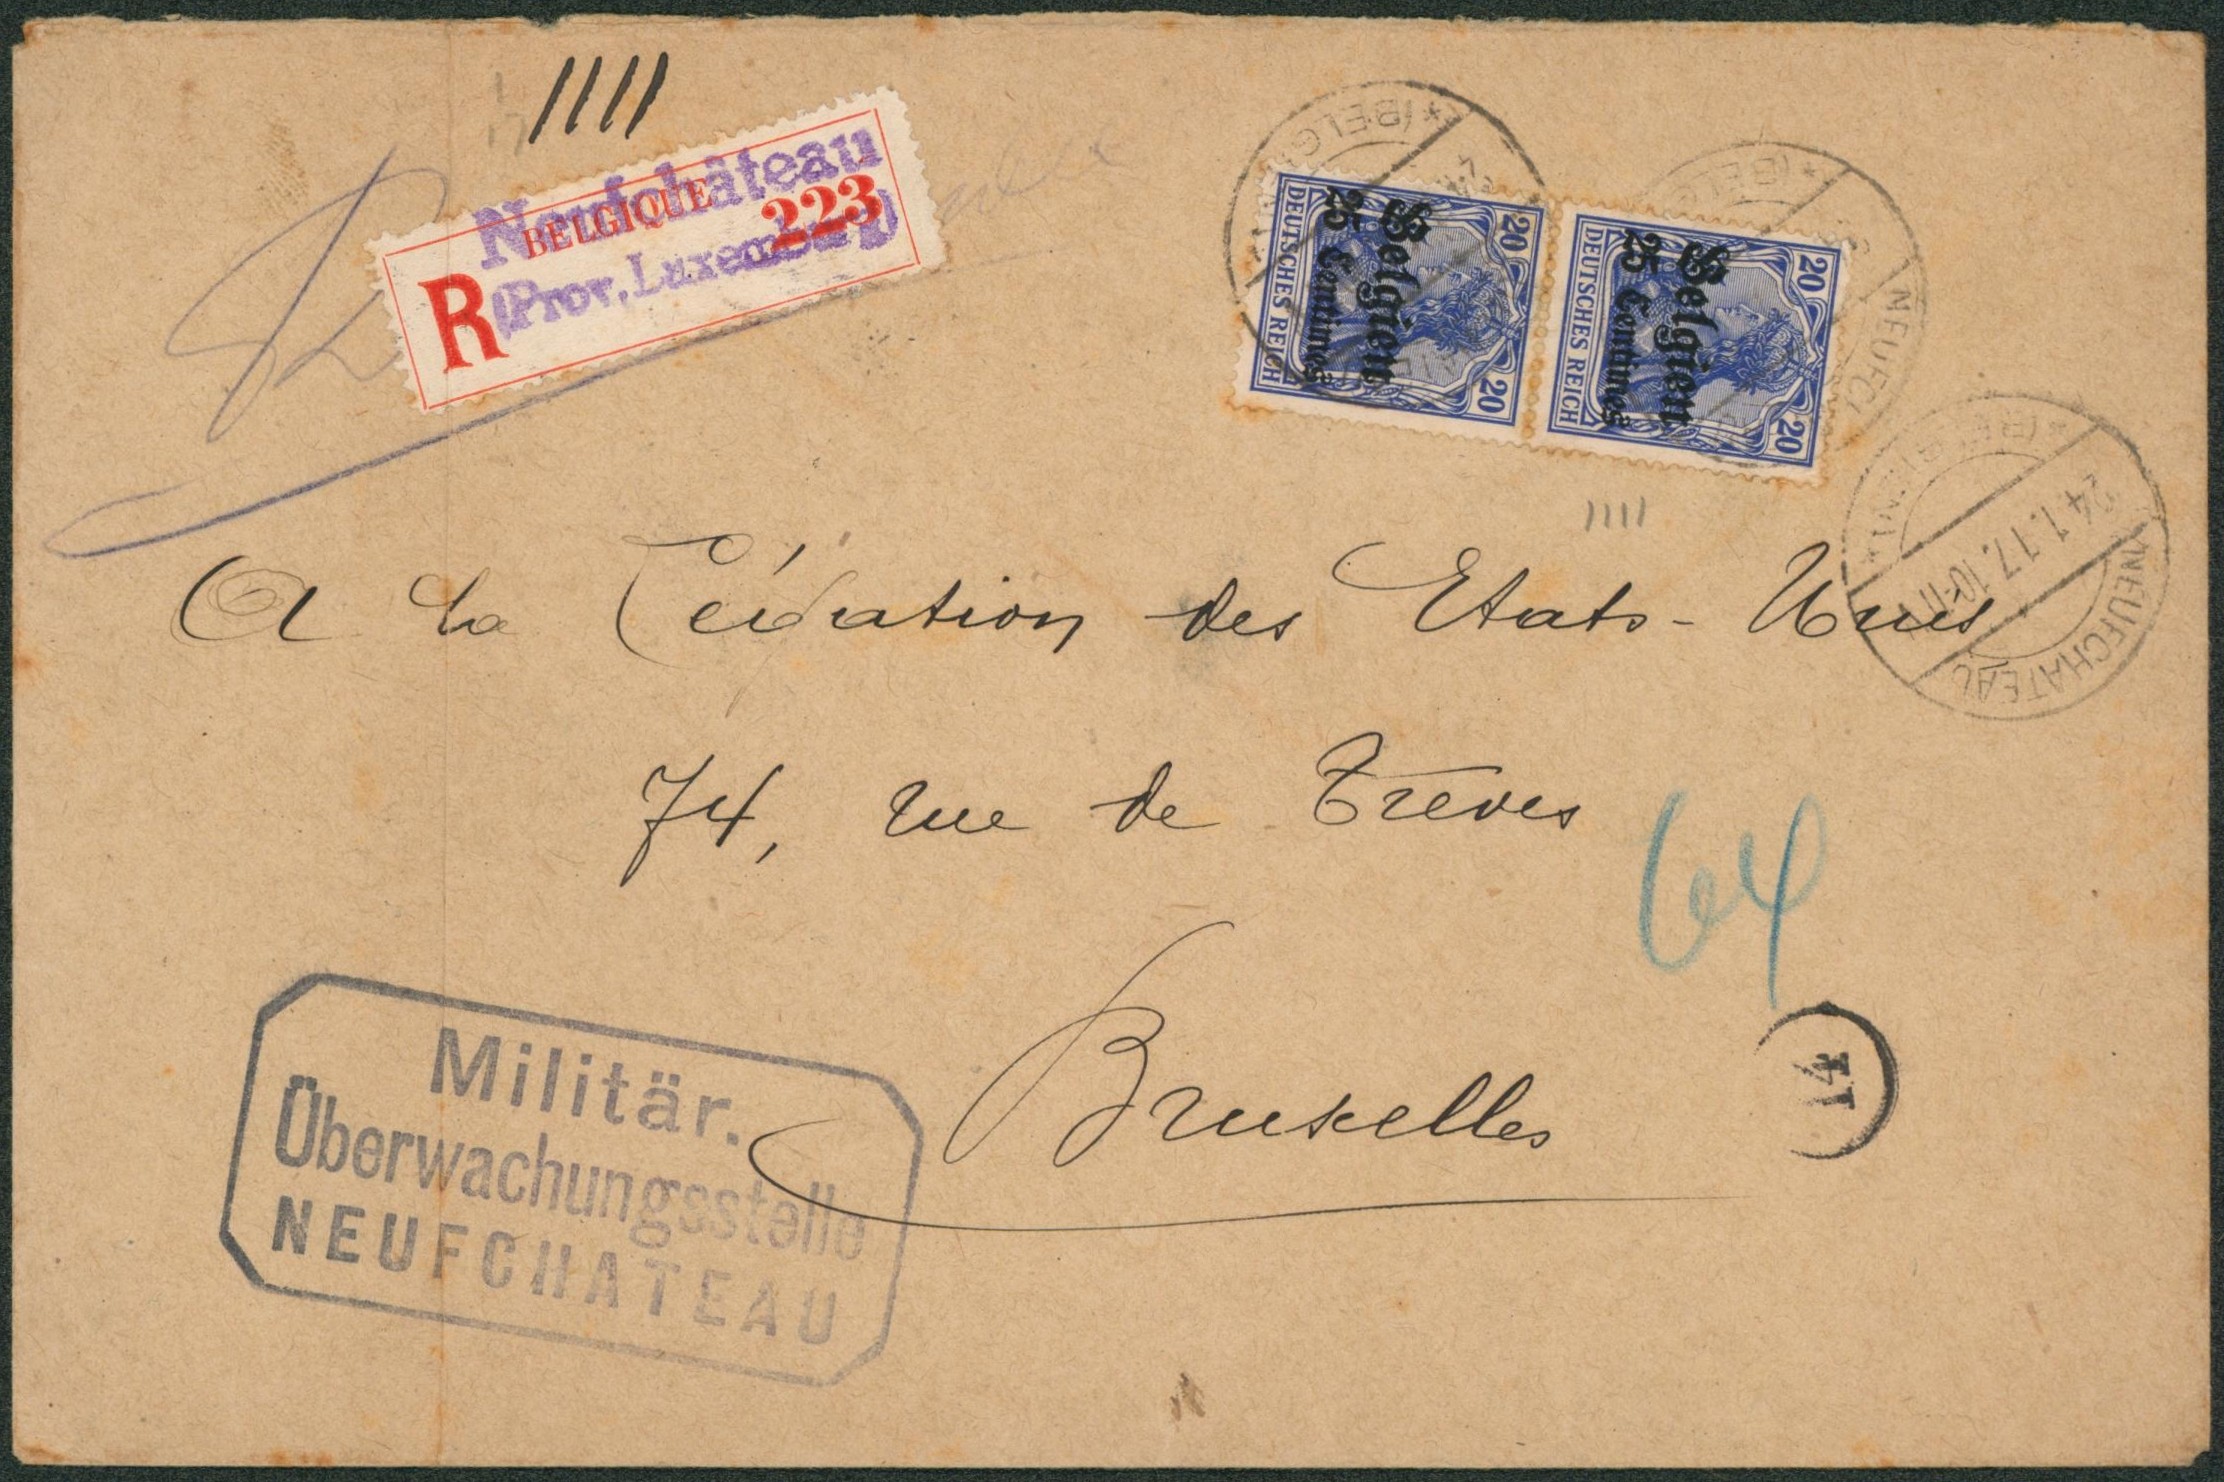 Neufchâteau
BELGIQUE
223
R
(Prov. Luxemburg)
Belgien
25 Centimes
20
20
DEUTSCHES REICH
Belgien
25 Centimes
20
20
DEUTSCHES REICH
*(BELG
*(BELG
NEUFC
*(BELGIEN)*
24.1.17.10-11
NEUFCHATEAU
A la Légation des Etats-Unis
74, rue de Trèves
64
Bruxelles
14
Militär.
Überwachungsstelle
NEUFCHATEAU